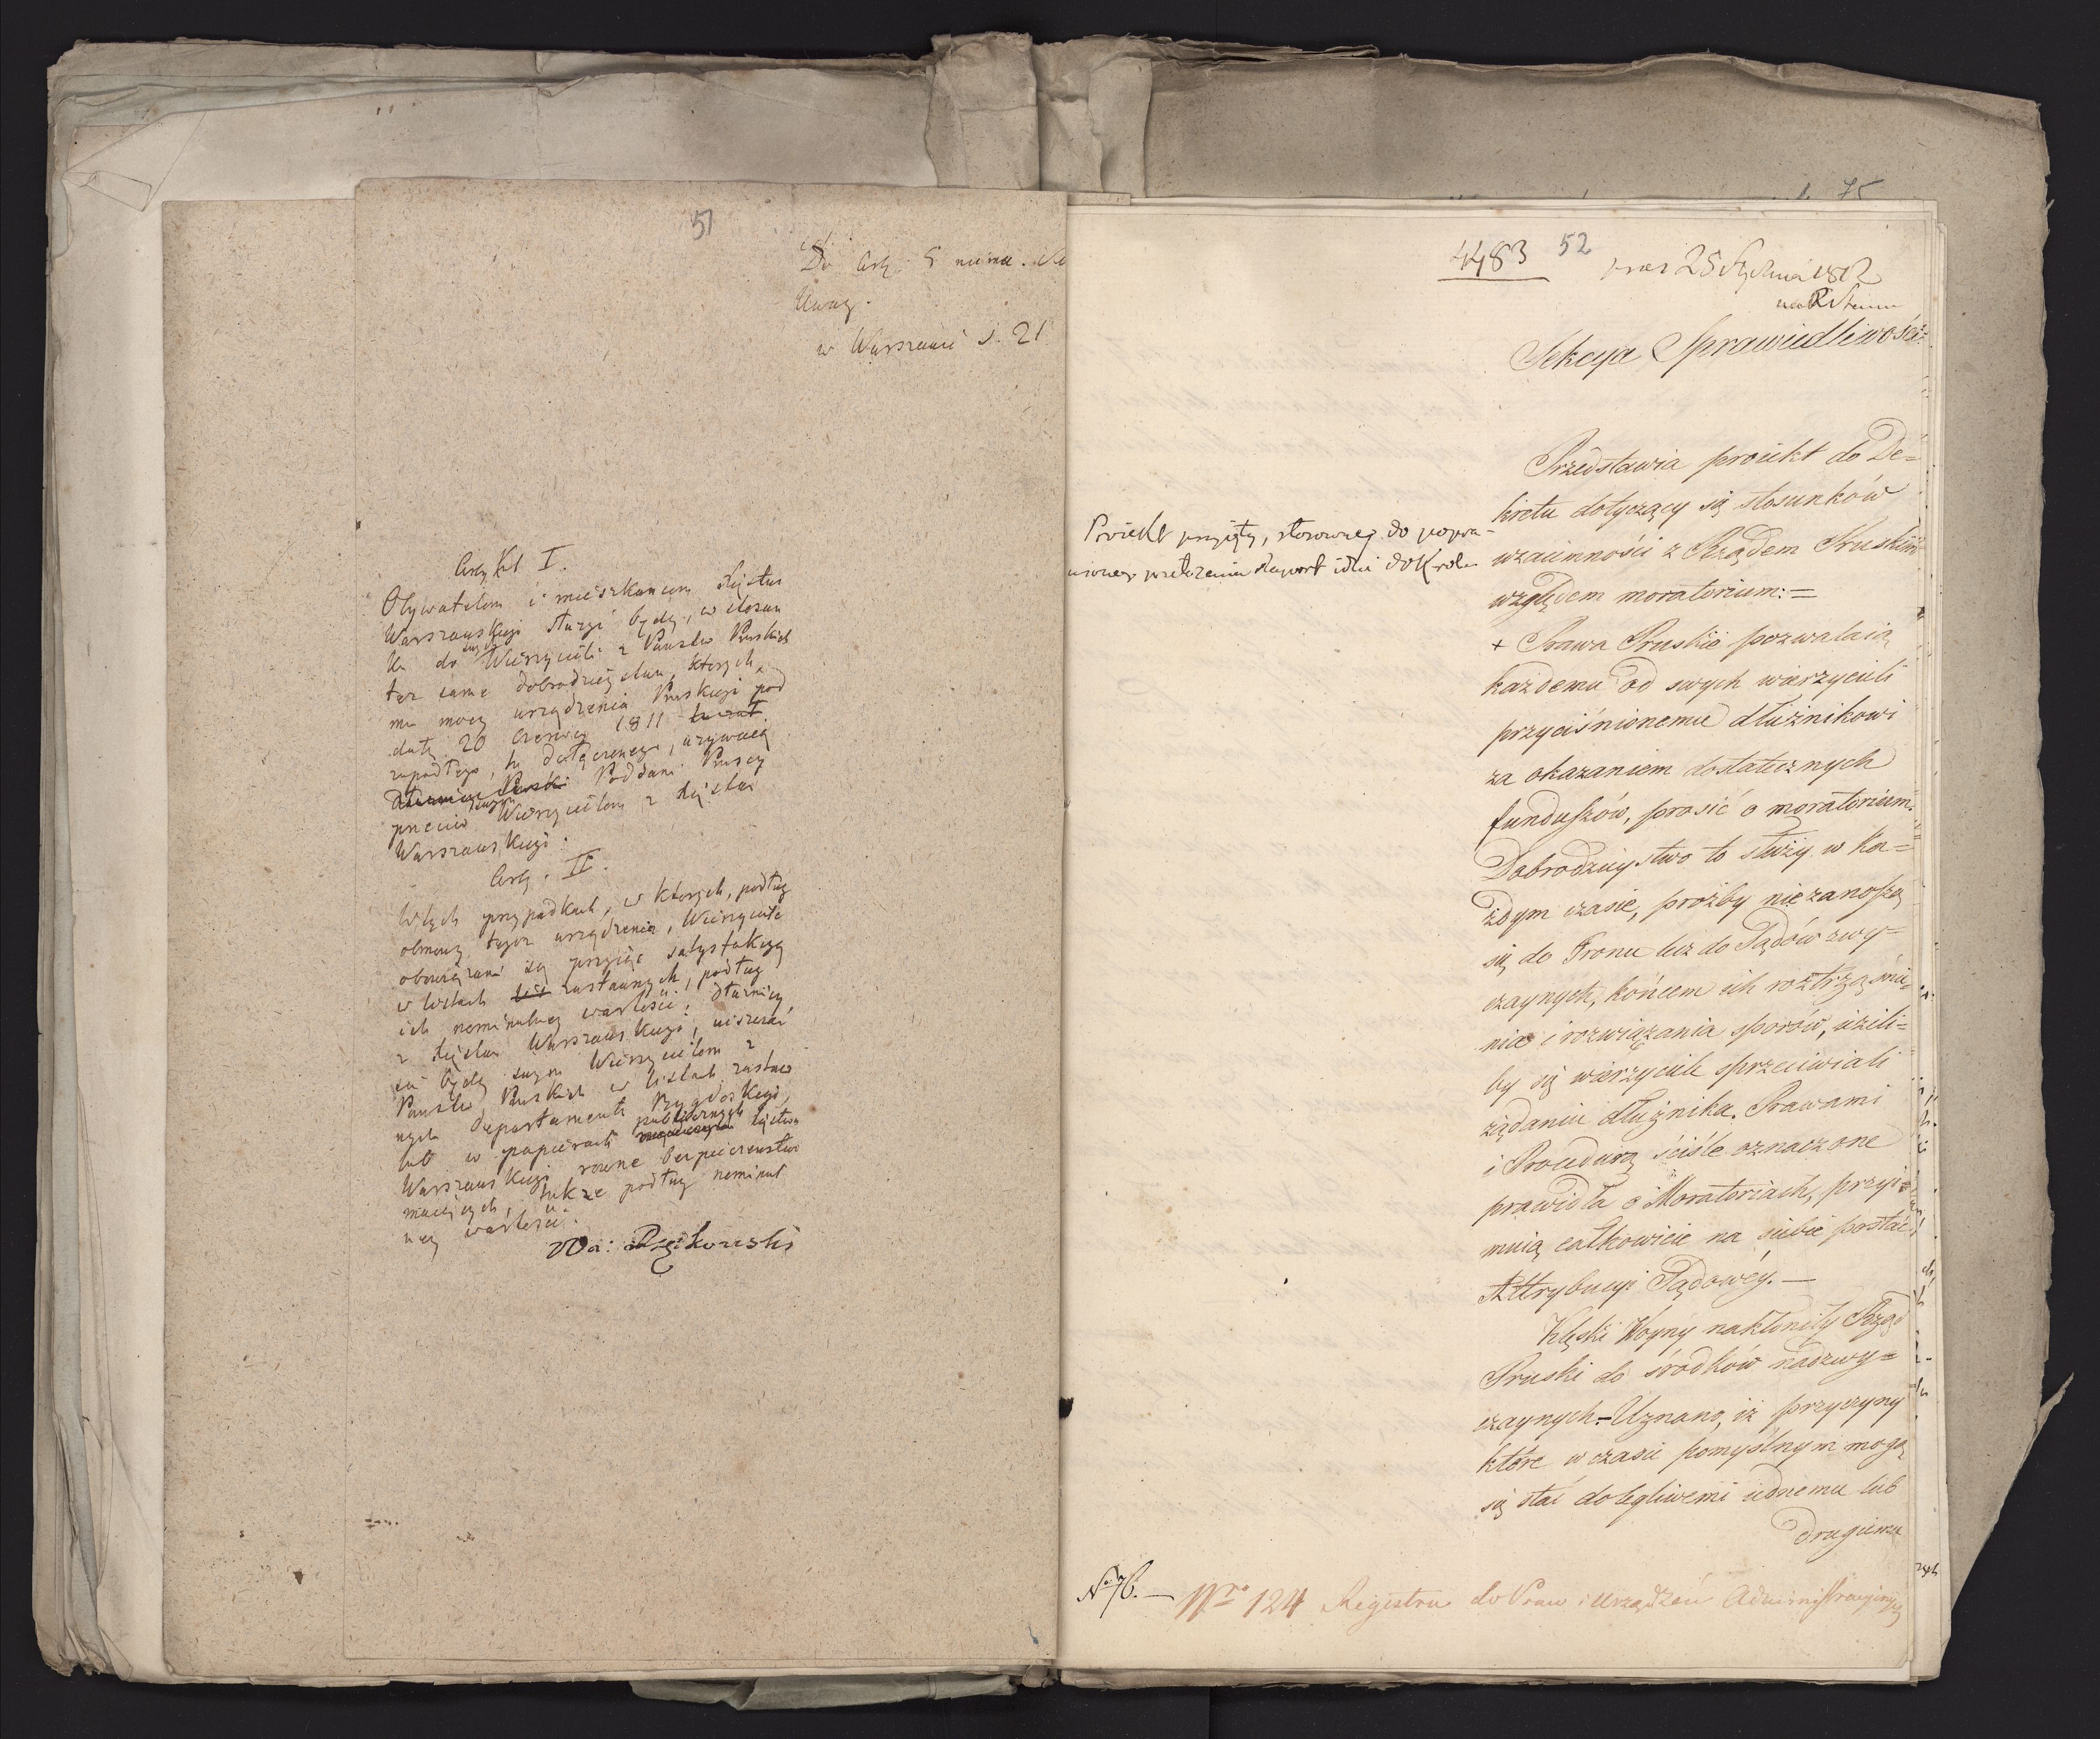 51
Do Art. 5
Uwag.
w Warszawie d. 21
Artykuł I.
Obywatelom i mieszkancom Xięstwa
Warszawskiego służyć będą, w stosun
ku do swych Wierzycieli z Państw Pruskich
też same dobrodzieystwa, ktorych
na mocy urządzenia Pruskiego pod
datą 20 Czerwca 1811
zapadłego, tu dołączonego, używaią
Dłużnicy Pruski Poddani Pruscy
przeciw swym Wierzycielom z Xięstwa
Warszawskiego.
Arty. II.
W tych przypadkach, w ktorych, podług
osnowy tegoż urządzenia, Wierzyciele
obowiązani są przyiąć satysfakcyą
w listach zastawnych, podług
ich nominalney wartości; dłużnicy
z Xięstwa Warszawskiego, uiszczać
się będą swym Wierzycielom z
Państw Pruskich w listach zastaw
nych Departamentu Bydgoskiego,
lub w papierach publicznych Xięstwa
Warszawskiego rowne bezpieczenstwo
maiących, także podług nominal
ney wartości.
4483 52
25 Stycznia 1812
Sekcya Sprawiedliwości
Przedstawia proiekt do De=
kretu dotyczący się stosunków
wzaiemności z Rządem Pruskim
względem moratorium:=
Proiekt przyięty, stosownie do popra-
wionego przełożenia Raport idzie do Króla
+ Prawa Pruskie pozwalaią
każdemu od swych wierzycieli
przyciśnionemu dłużnikowi
za okazaniem dostatecznych
funduszów, prosić o moratorium.
Dobrodzieystwo to służy w ka=
żdym czasie, prożby nie zanoszą
się do Tronu lecz do Sądów zwy=
czaynych, końcem ich roztrząśnie=
nia i rozwiązania sporów, ieżeli=
by się wierzyciele sprzeciwiali
żądaniu dłużnika. Prawami
i Procedurą ściśle oznaczone
prawidła o Moratoriach, przyi=
muią całkowicie na siebie postać
Attrybucyi Sądowéy.—
Klęski Woyny nakłoniły Rząd
Pruski do środków nadzwy=
czaynych.- Uznano, iż przyczyny
które w czasie pomyślnym mogą
się stać dolegliwemi iednemu lub
drugiemu
No 76.— Nro 124 Registru do Praw i Urządzeń Administracyinych
75